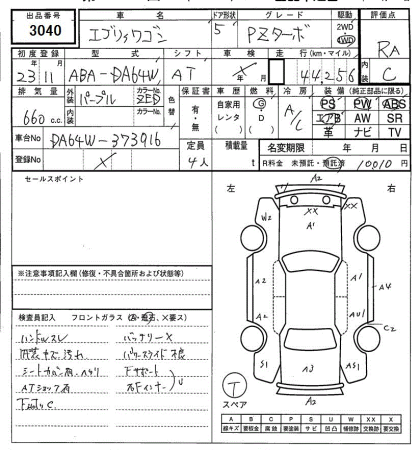 出品番号 車名 ドア形状 グレード 駆動 評価点
3040 エブリィワゴン 5 PZターボ 2WD 4WD RA
初度登録 型式 シフト 車検 走行(km・マイル) 内装
23 11 ABA-DA64W AT 44,256 C
排気量 外装 カラーNo. 色替 保証書 車歴 燃料 冷房 装備(純正部品に限る)
660 c.c. パープル ZED 有・無 自家用 レンタ G D A/C PS PW ABS
内装 カラーNo. エアB AW SR
革 ナビ TV
車台No DA64W-373916 定員 積載量 名変期限 年 月 日
登録No 4人 t R料金 未預託・預託済 10010円
セールスポイント 左 右
A2
XX XX
W2 A1
A2 A1 A4
A2 AU1 C2
S1 A3 AS1
A2
※注意事項記入欄(修復・不具合箇所および状態等)
検査員記入 フロントガラス
ハンドルスレ バッテリーX
シートカバー有
ATショック有
下回りC
T
スペア
A B C P S U W XX X
線キズ 要板金 腐蝕 要塗装 サビ 凹凸 補修跡 交換跡 要交換